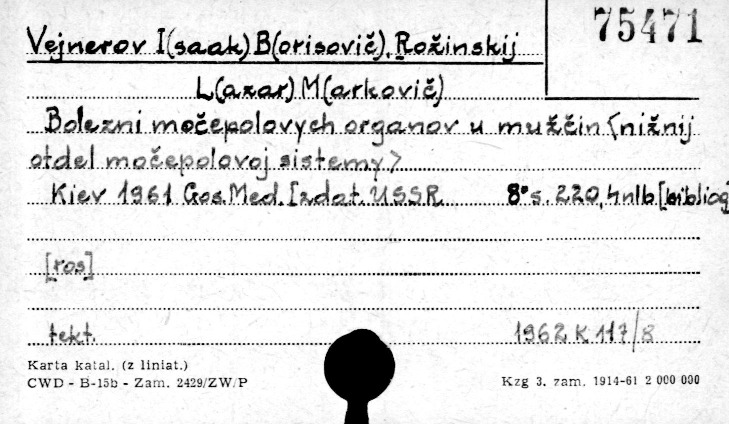 75471
Vejnerov I(saak) B(orisovič), Rožinskij
L(azar) M(arkovič)
Bolezni močepolovych organov u mužčin <nižnij
otdel močepolovoj sistemy>
Kiev 1961 Gos. Med. Izdat. USSR 8° s. 220, 4nlb [bibliog]
[ros]
tekt. 1962 K 117/8
Karta katal. (z liniat.)
CWD - B-15b - Zam. 2429/ZW/P Kzg 3. zam. 1914-61 2 000 000